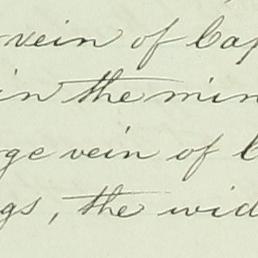 vein of Cap
in the min
ge vein of C
gs, the wid